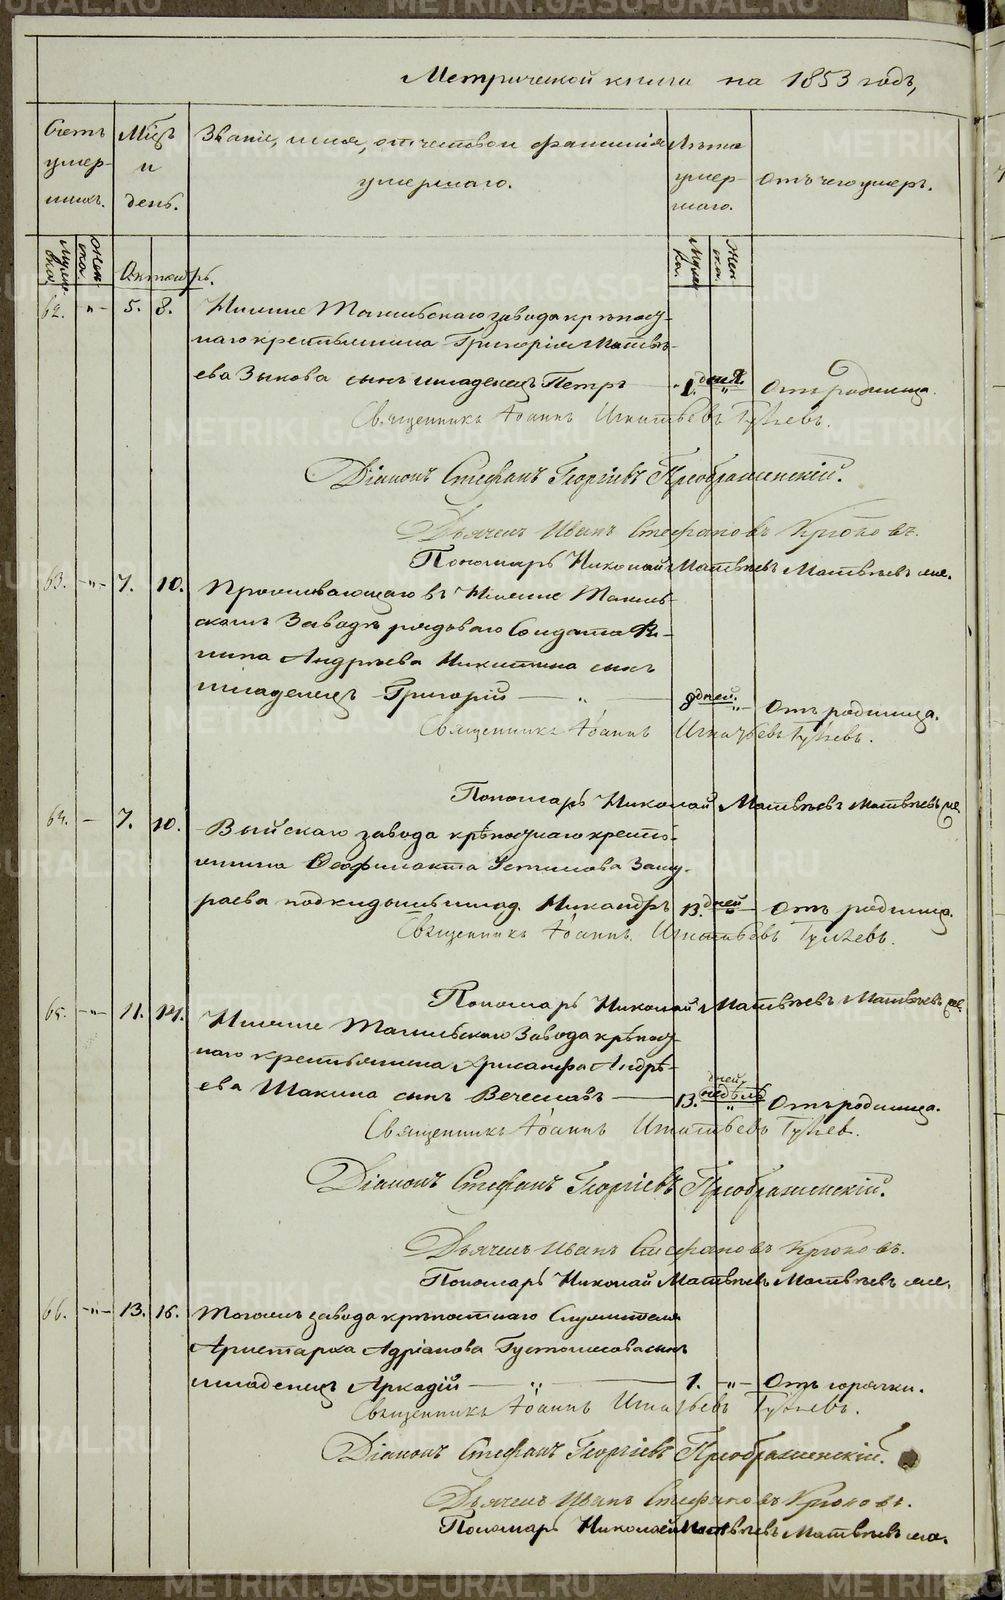 METRIKI.GASO-URAL.RU
Метрической книги на 1853 годъ,
Счетъ умер- шихъ.
Мѣсц. и день.
Званіе, имя, отчество и фамилія умершаго.
Лѣта умер- шаго.
Отъ чего умеръ.
Муже- ска.
Жен- ска.
Октябрь.
Муже- ска.
Жен- ска.
62. " 5. 8. Нижне Тагильскаго завода крѣпост-
наго крестьянина Григорія Матвѣ-
ева Зыкова сынъ младенецъ Петръ 1. дня. " Отъ родимца.
Священникъ Іоаннъ Игнатьевъ
Діаконъ Стефанъ Георгіевъ Преображенскій.
Дьячекъ Иванъ Стефановъ Крюковъ.
Пономарь Николай Матвѣевъ Матвѣевъ
63. " 7. 10. Проживающаго въ Нижне Тагиль-
скомъ Заводѣ рядоваго Солдата
Андреева Никитина сынъ
младенецъ Григорій " дней. " Отъ родимца.
Священникъ Іоаннъ Игнатьевъ
Пономарь Николай Матвѣевъ Матвѣевъ
64. 7. 10. Выйскаго завода крѣпостнаго кресть-
янина Ѳеофилакта Устинова
подкидышъ млад. Никандръ 13. дней " Отъ родимца.
Священникъ Іоаннъ Игнатьевъ
Пономарь Николай Матвѣевъ Матвѣевъ
65. " 11. 14. Нижне Тагильскаго Завода крѣпост-
наго крестьянина Хрисанфа Андрѣ-
ева Шакина сынъ Вечеславъ 13. дней недѣль " Отъ родимца.
Священникъ Іоаннъ Игнатьевъ
Діаконъ Стефанъ Георгіевъ Преображенскій.
Дьячекъ Иванъ Стефановъ Крюковъ.
Пономарь Николай Матвѣевъ Матвѣевъ
66. " 13. 16. Тогожъ завода крѣпостнаго Служителя
Аристарха Адріанова сынъ
младенецъ Аркадій " 1. " Отъ горячки.
Священникъ Іоаннъ Игнатьевъ
Діаконъ Стефанъ Георгіевъ Преображенскій.
Дьячекъ Иванъ Стефановъ Крюковъ.
Пономарь Николай Матвѣевъ Матвѣевъ